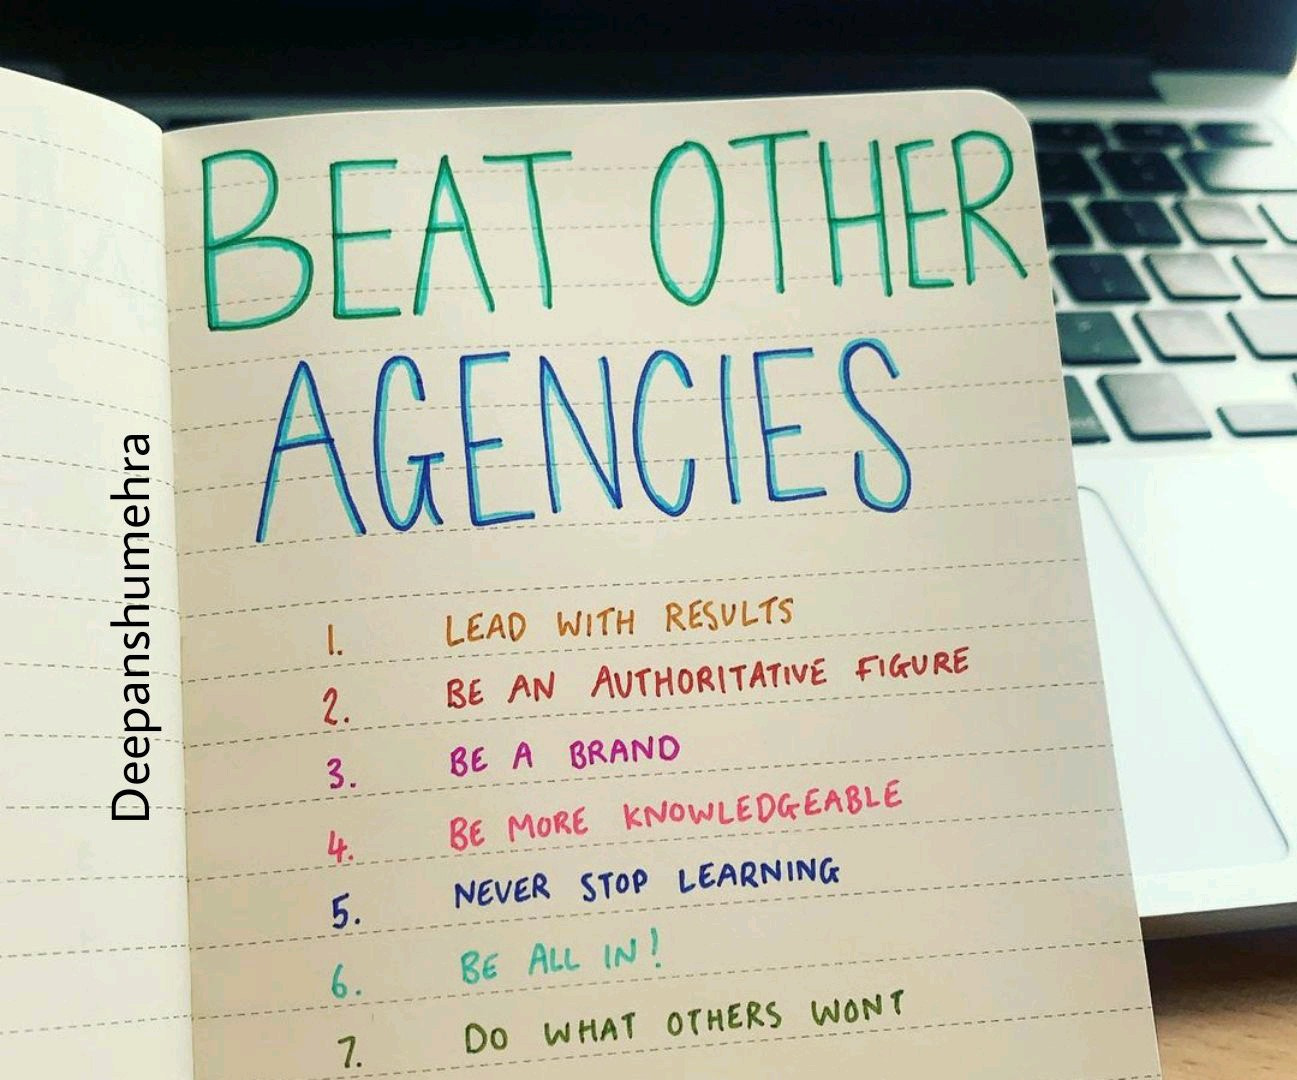 BEAT OTHER
AGENCIES
1. LEAD WITH RESULTS
2. BE AN AUTHORITATIVE FIGURE
3. BE A BRAND
4. BE MORE KNOWLEDGEABLE
5. NEVER STOP LEARNING
6. BE ALL IN!
7. DO WHAT OTHERS WONT
Deepanshumehra